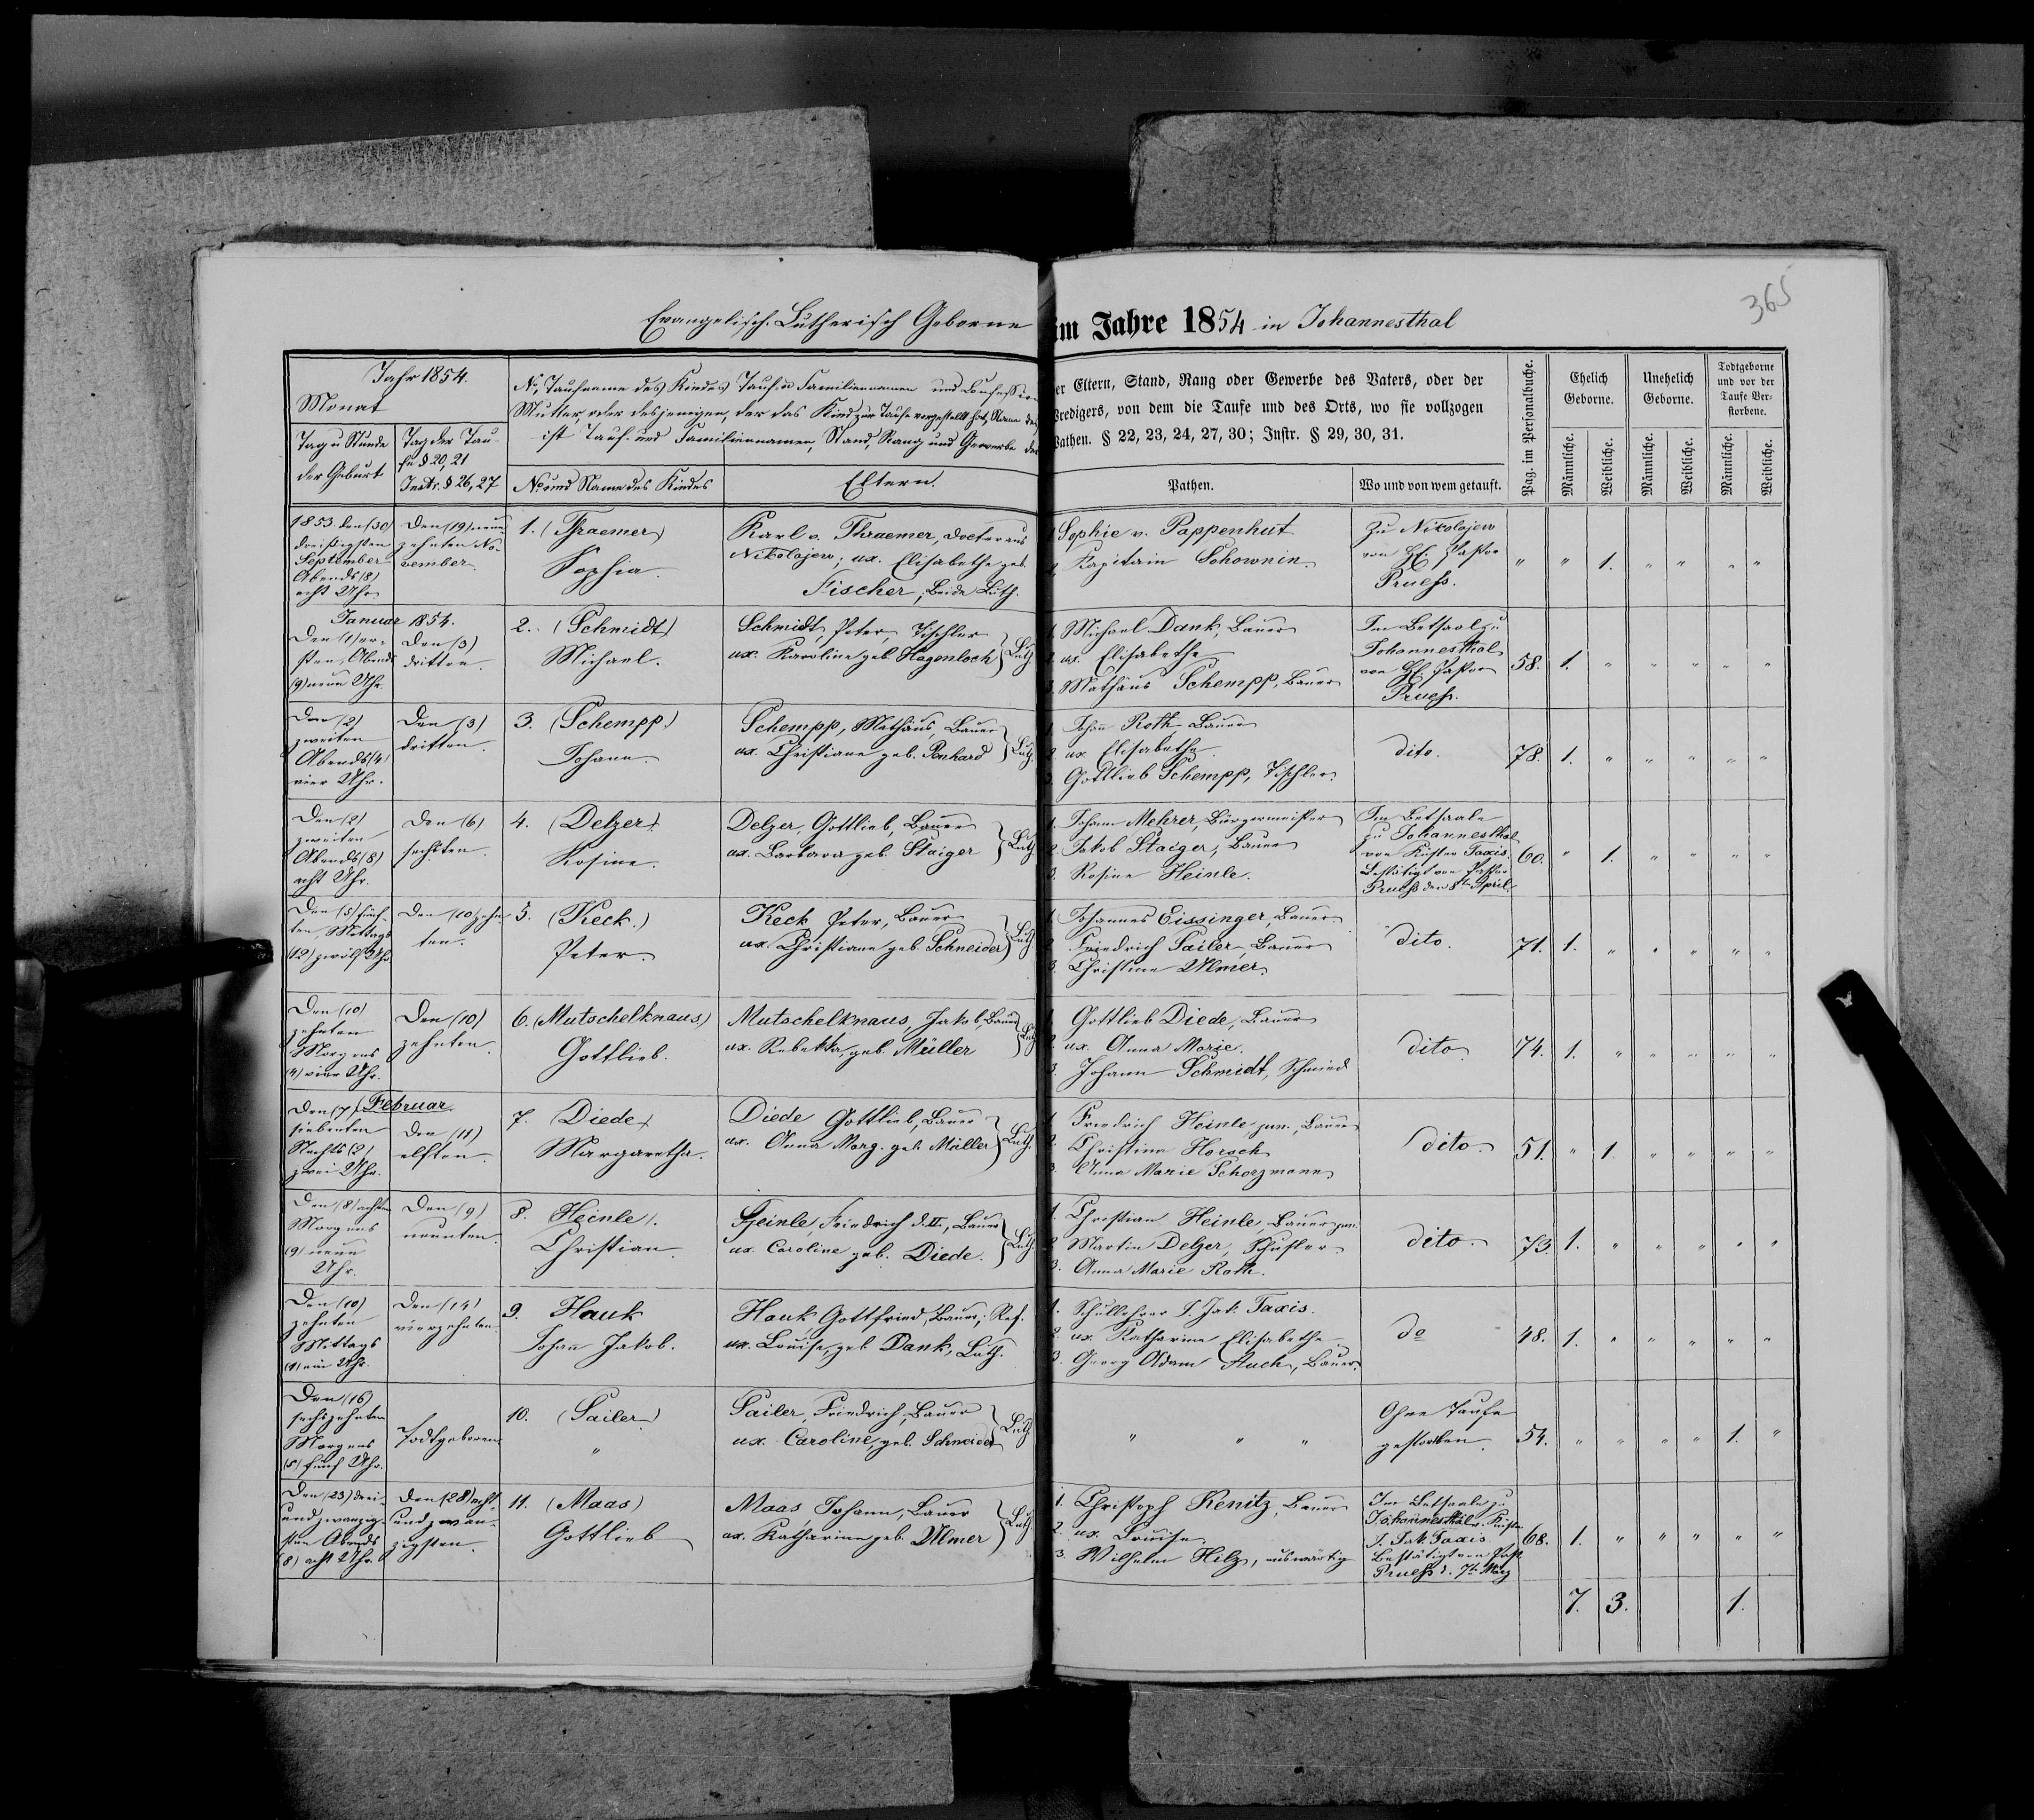 365
Evangelisch-Lutherisch Geborne im Jahre 1854 in Johannesthal
Jahr 1854.
Monat
Tag u Stunde
der Geburt
Tag der Tau-
fe § 20, 21
Instr. § 26, 27
No Taufname des Kindes Tauf- u Familiennamen und Confession der Eltern, Stand, Rang oder Gewerbe des Vaters, oder der
Mutter, oder desjenigen, der das Kind zur Taufe vorgestellt hat, Name des Predigers, von dem die Taufe und des Orts, wo sie vollzogen
ist Tauf- und Familiennamen, Stand, Rang und Gewerbe der Pathen. § 22, 23, 24, 27, 30; Instr. § 29, 30, 31.
No und Name des Kindes
Eltern.
Pathen.
Wo und von wem getauft.
Pag. im Personalbuche.
Ehelich
Geborne.
Unehelich
Geborne.
Todtgeborne
und vor der
Taufe Ver-
storbene.
Männliche.
Weibliche.
Männliche.
Weibliche.
Männliche.
Weibliche.
1853. den (30)
dreißigsten
September
Abends (8)
acht Uhr
Den (19) neun-
zehnten No-
vember.
1. (Thraemer)
Sophia.
Karl v. Thraemer, Doctor aus
Nikolajew; ux. Elisabethe geb.
Fischer, beide Luth.
1 Sophie v. Pappenhut
2 Kapitain Schownin
Zu Nikolajew
von H. Pastor
Pruess.
" " 1. " " " "
Januar 1854.
Den (1) er-
sten, Abends
(9) neun Uhr.
Den (3)
dritten.
2. (Schmidt)
Michael.
Schmidt, Peter, Tischler
ux. Karoline geb. Hagenloch } Luth.
1. Michael Dank, Bauer
2. ux. Elisabethe
3. Mathäus Schempp, Bauer
Im Betsaal zu
Johannesthal
von H. Pastor
Pruess.
58. 1. " " " " "
Den (2)
zweiten
Abends (4)
vier Uhr.
Den (3)
dritten.
3. (Schempp)
Johann.
Schempp, Mathäus, Bauer
ux. Christiane geb. Ponhard } Luth.
1. Johann Roth Bauer
2. ux. Elisabethe
3. Gottlieb Schempp, Tischler.
dito.
78. 1. " " " " "
Den (2)
zweiten
Abends (8)
acht Uhr.
Den (6)
sechsten.
4. (Delzer)
Rosine.
Delzer, Gottlieb, Bauer
ux. Barbara geb. Staiger } Luth
1. Johann Mehrer, Bürgermeister
2. Jakob Staiger, Bauer
3. Rosine Heinle.
Im Betsaale
zu Johannesthal
von Küster Taxis.
Bestätigt von Pastor
Pruess den 8ten April.
60. " 1. " " " "
Den (5) fünf-
ten, Mittags
(12) zwölf Uhr
Den (10) zehn-
ten.
5. (Keck.)
Peter.
Keck Peter, Bauer
ux. Christiane geb. Schneider } Luth
1. Johannes Eissinger, Bauer
2. Friedrich Sailer, Bauer
3. Christine Ulmer.
dito.
71. 1. " " " " "
Den (10)
zehnten
Morgens
(4) vier Uhr.
Den (10)
zehnten.
6. (Mutschelknaus)
Gottlieb.
Mutschelknaus, Jakob, Bauer
ux. Rebekka, geb. Müller } Luth
1. Gottlieb Diede, Bauer
2. ux. Anna Marie.
3. Johann Schmidt, Schmied
dito.
74. 1. " " " " "
Februar.
Den (7)
siebenten
Nachts (2)
zwei Uhr.
Den (11)
elften.
7. Diede
Margaretha.
Diede Gottlieb, Bauer
ux. Anna Marg. geb. Müller } Luth.
1. Friedrich Heinle jun., Bauer
2. Christine Horsch
3. Anna Marie Schorzmann
dito.
51. " 1. " " " "
Den (8) achten
Morgens
(9) neun
Uhr.
Den (9)
neunten.
8. Heinle.
Christian.
Heinle, Friedrich d. II., Bauer
ux. Caroline geb. Diede. } Luth.
1. Christian Heinle, Bauer jun.
2. Martin Delzer, Schuster
3. Anna Marie Roth.
dito.
73. 1. " " " " "
Den (10)
zehnten
Mittags
(1) ein Uhr.
Den (14)
vierzehnten.
9. Hauk
Johann Jakob.
Hauk Gottfried, Bauer, Ref.
ux. Louise, geb. Dank, Luth.
1. Schullehrer J. Jak. Taxis.
2. ux. Katharina Elisabethe
3. Georg Adam Auch, Bauer.
do
48. 1. " " " " "
Den (16)
sechszehnten
Morgens
(5) fünf Uhr.
Todtgeboren
10. (Sailer)
"
Sailer, Friedrich, Bauer
ux. Caroline, geb. Schneider } Luth
" " "
Ohne Taufe
gestorben.
54. " " " " 1. "
Den (23) drei-
und zwanzig-
sten Abends
(8) acht Uhr.
Den (28) acht-
und zwan-
zigsten.
11. (Maas)
Gottlieb
Maas, Johann, Bauer
ux. Katharine geb. Ulmer } Luth
1. Christoph Kenitz, Bauer
2. ux. Louise
3. Wilhelm Hilz, auswärtig
Im Betsaale zu
Johannesthal v. Küster
J. Jak. Taxis
Bestätigt von Past.
Pruess d. 7te März
68. 1. " " " " "
7. 3. 1.